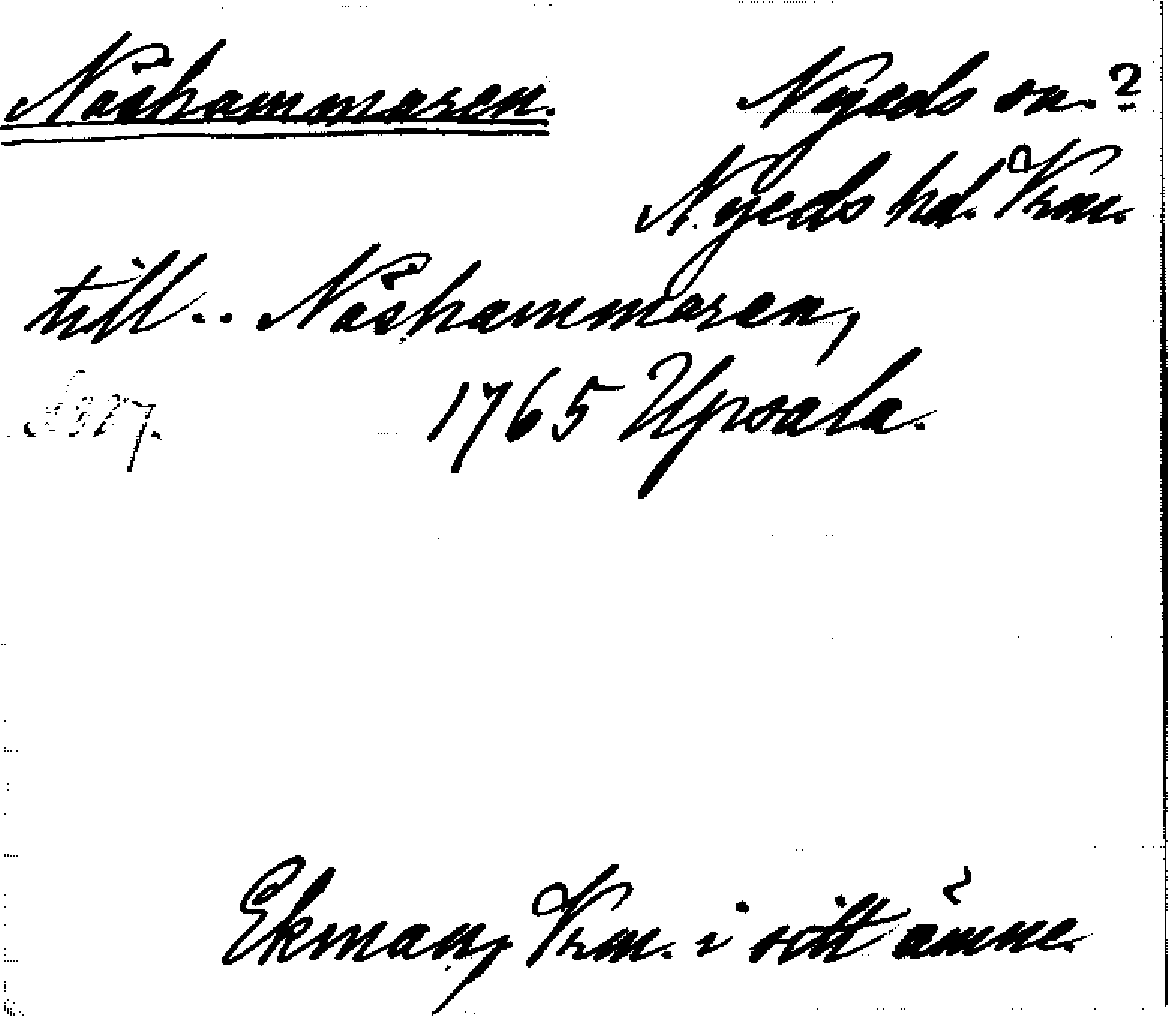 Näshammaren. Nyeds sn.?
Nyeds hd. Vrm.
till.. Näshammaren,
1765 Upsala.
Ekman, Vrm. i sitt ämne.